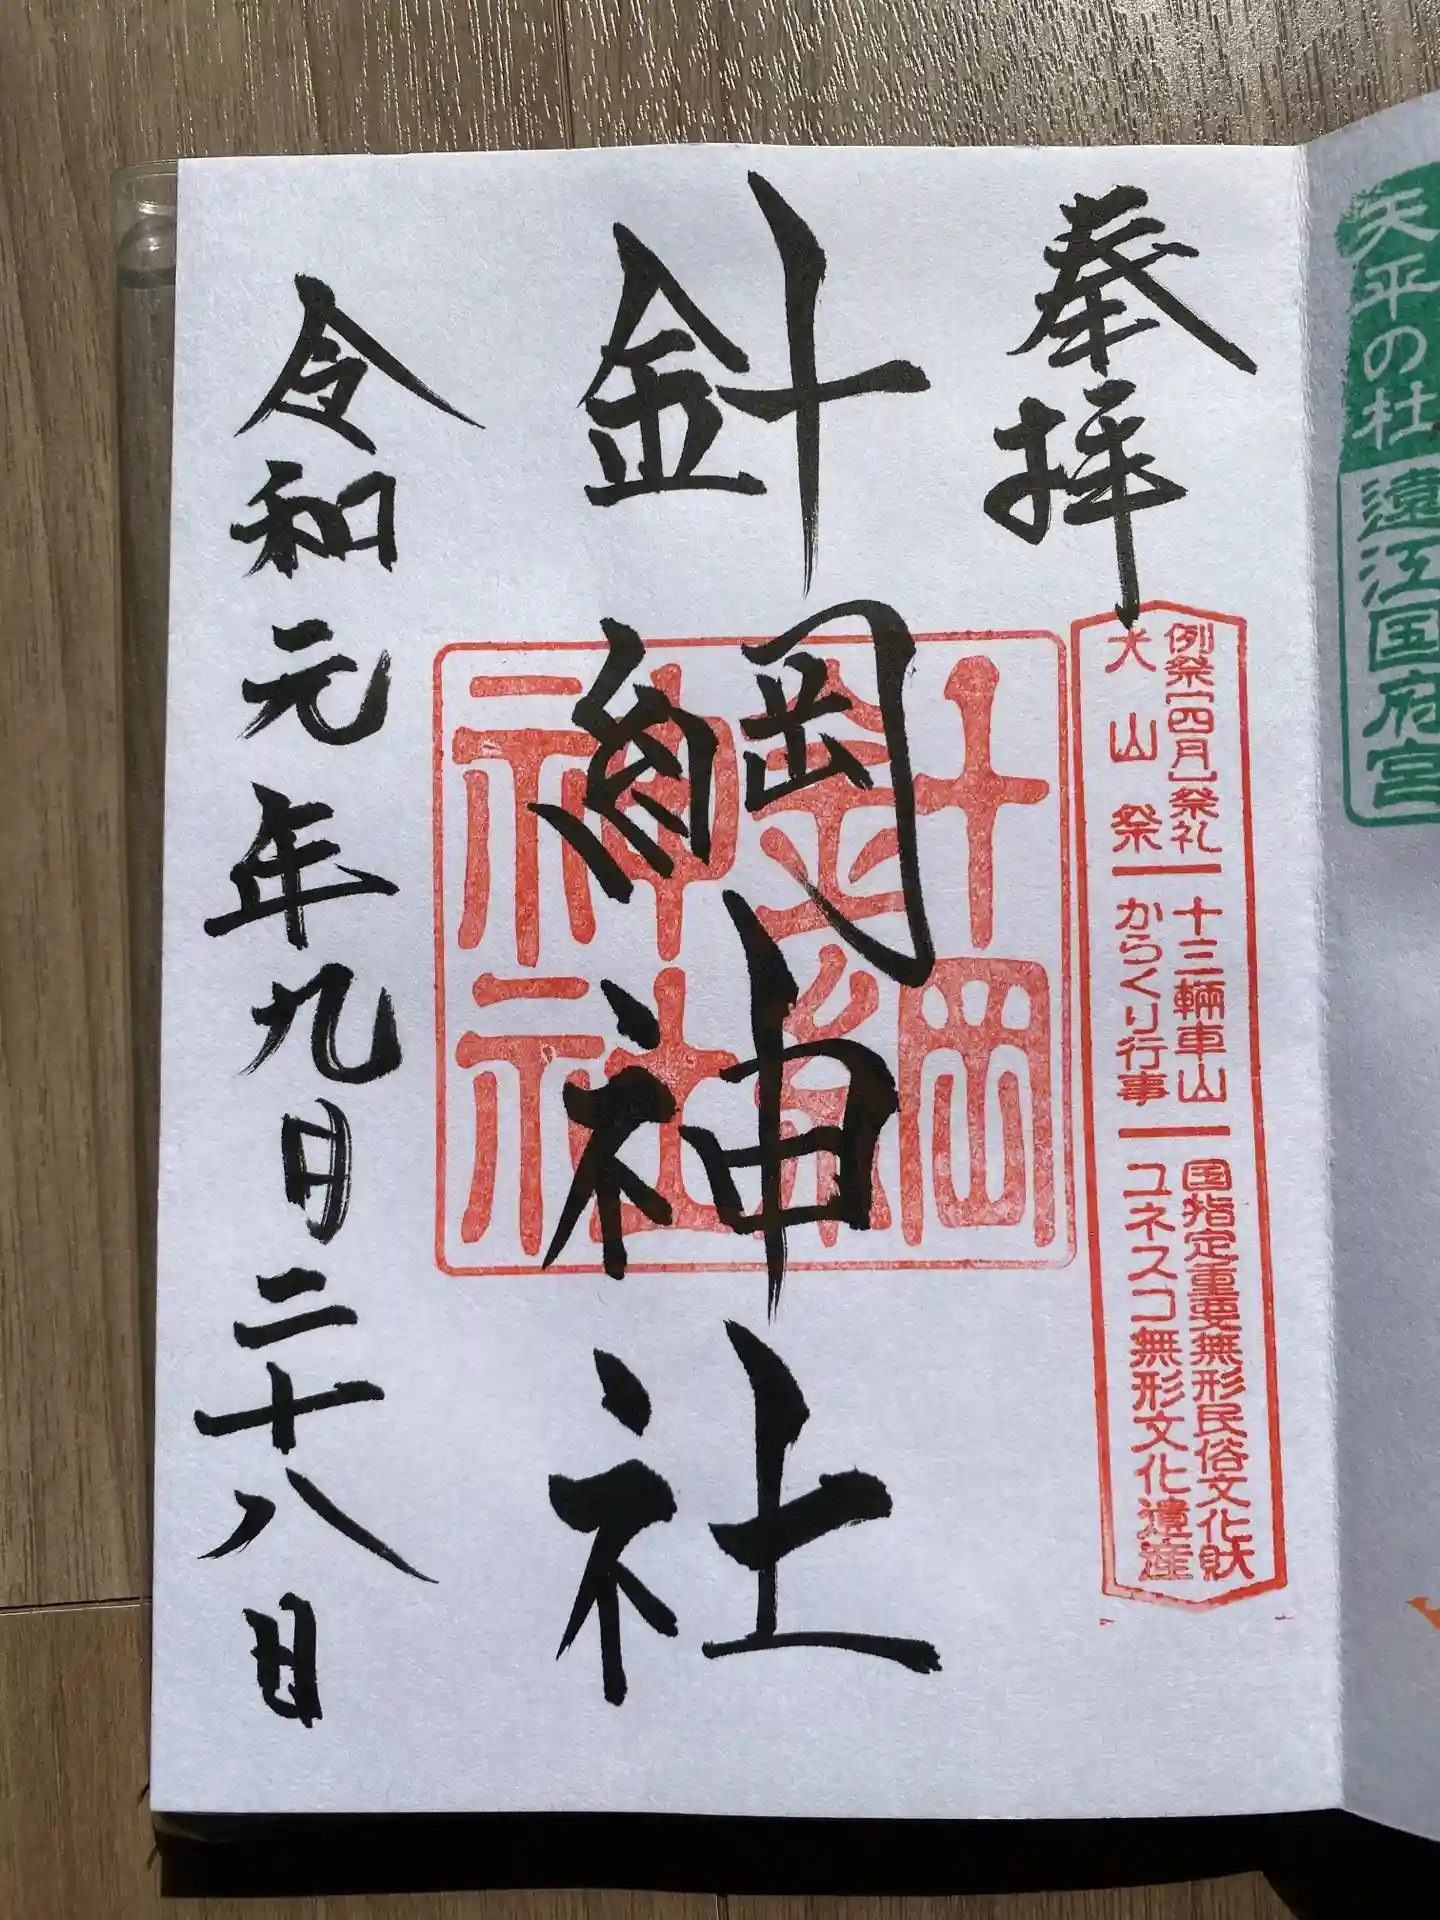 天平の杜
遠江国府宮
奉拝
例祭[四月]祭礼
犬山祭
十三輛車山
からくり行事
国指定重要無形民俗文化財
ユネスコ無形文化遺産
針綱神社
針綱神社
令和元年九月二十八日